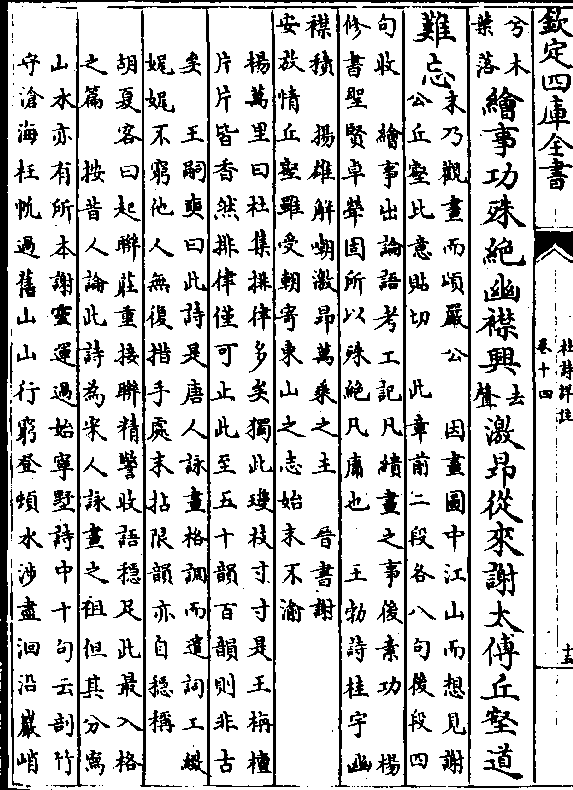 欽定四庫全書
杜詩詳註
卷十四
十五
兮木
葉落
繪事功殊絶幽襟興
去
聲
激昂從來謝太傅丘壑道
難忘
末乃觀畫而頌嚴公 因畫圖中江山而想見謝
公丘壑此意貼切 此章前二段各八句後段四
句收 繪事出論語考工記凡繢畫之事後素功 楊
修書聖賢卓犖固所以殊絶凡庸也 王勃詩桂宇幽
襟積 揚雄解嘲激昂萬乘之主 晉書謝
安放情丘壑雖受朝寄東山之志始末不渝
楊萬里曰杜集排律多矣獨此瓊枝寸寸是王栴檀
片片皆香然排律僅可止此至五十韻百韻則非古
矣 王嗣奭曰此詩是唐人詠畫格調而遣詞工緻
娓娓不窮他人無復措手處末拈限韻亦自穩稱
胡夏客曰起聯莊重接聯精警收語穩足此最入格
之篇 按昔人論此詩為宋人詠畫之祖但其分寫
山水亦有所本謝靈運過始寧墅詩中十句云剖竹
守滄海枉帆過舊山山行窮登頓水涉盡洄沿巖峭